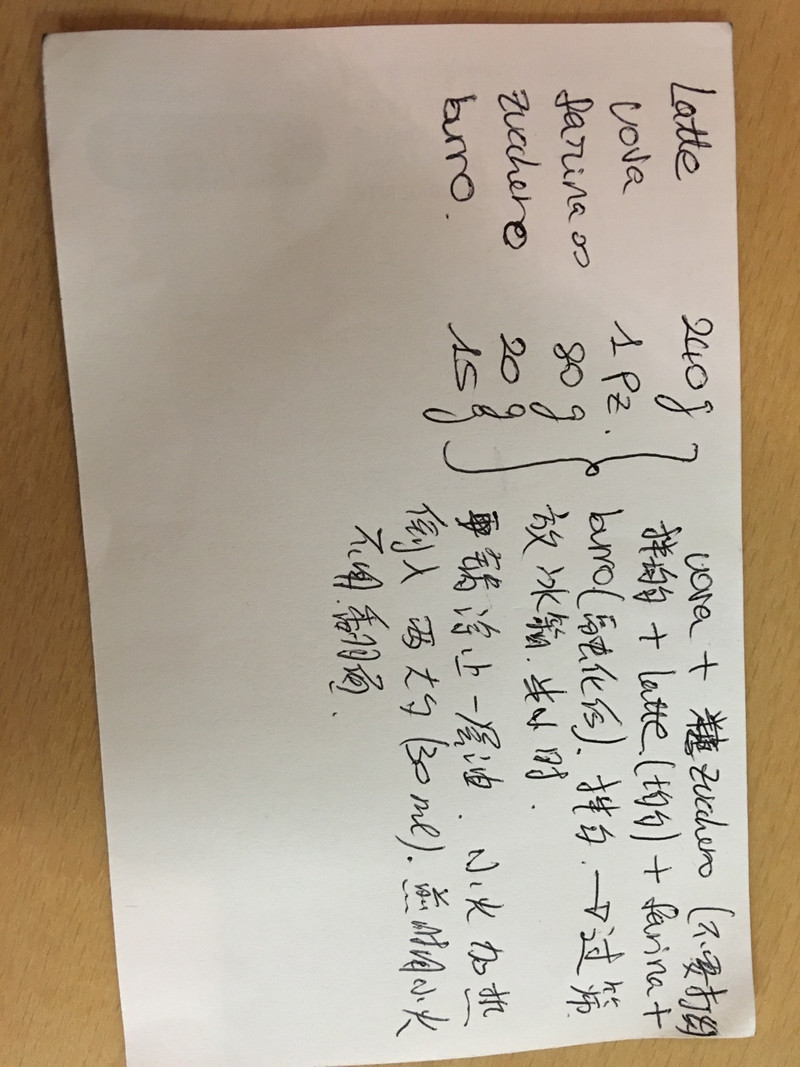 Latte 240g
uova 1 Pz.
farina 00 80g
zucchero 20g
burro. 15g
uova + zucchero (不要打的
拌均匀 + latte (均匀) + farina +
burro (融化后). 拌匀. → 过筛
放冰箱. 半小时.
平锅涂上一层油. 小火加热
倒入 两大勺 (30ml). 煎时用小火
不用翻面.